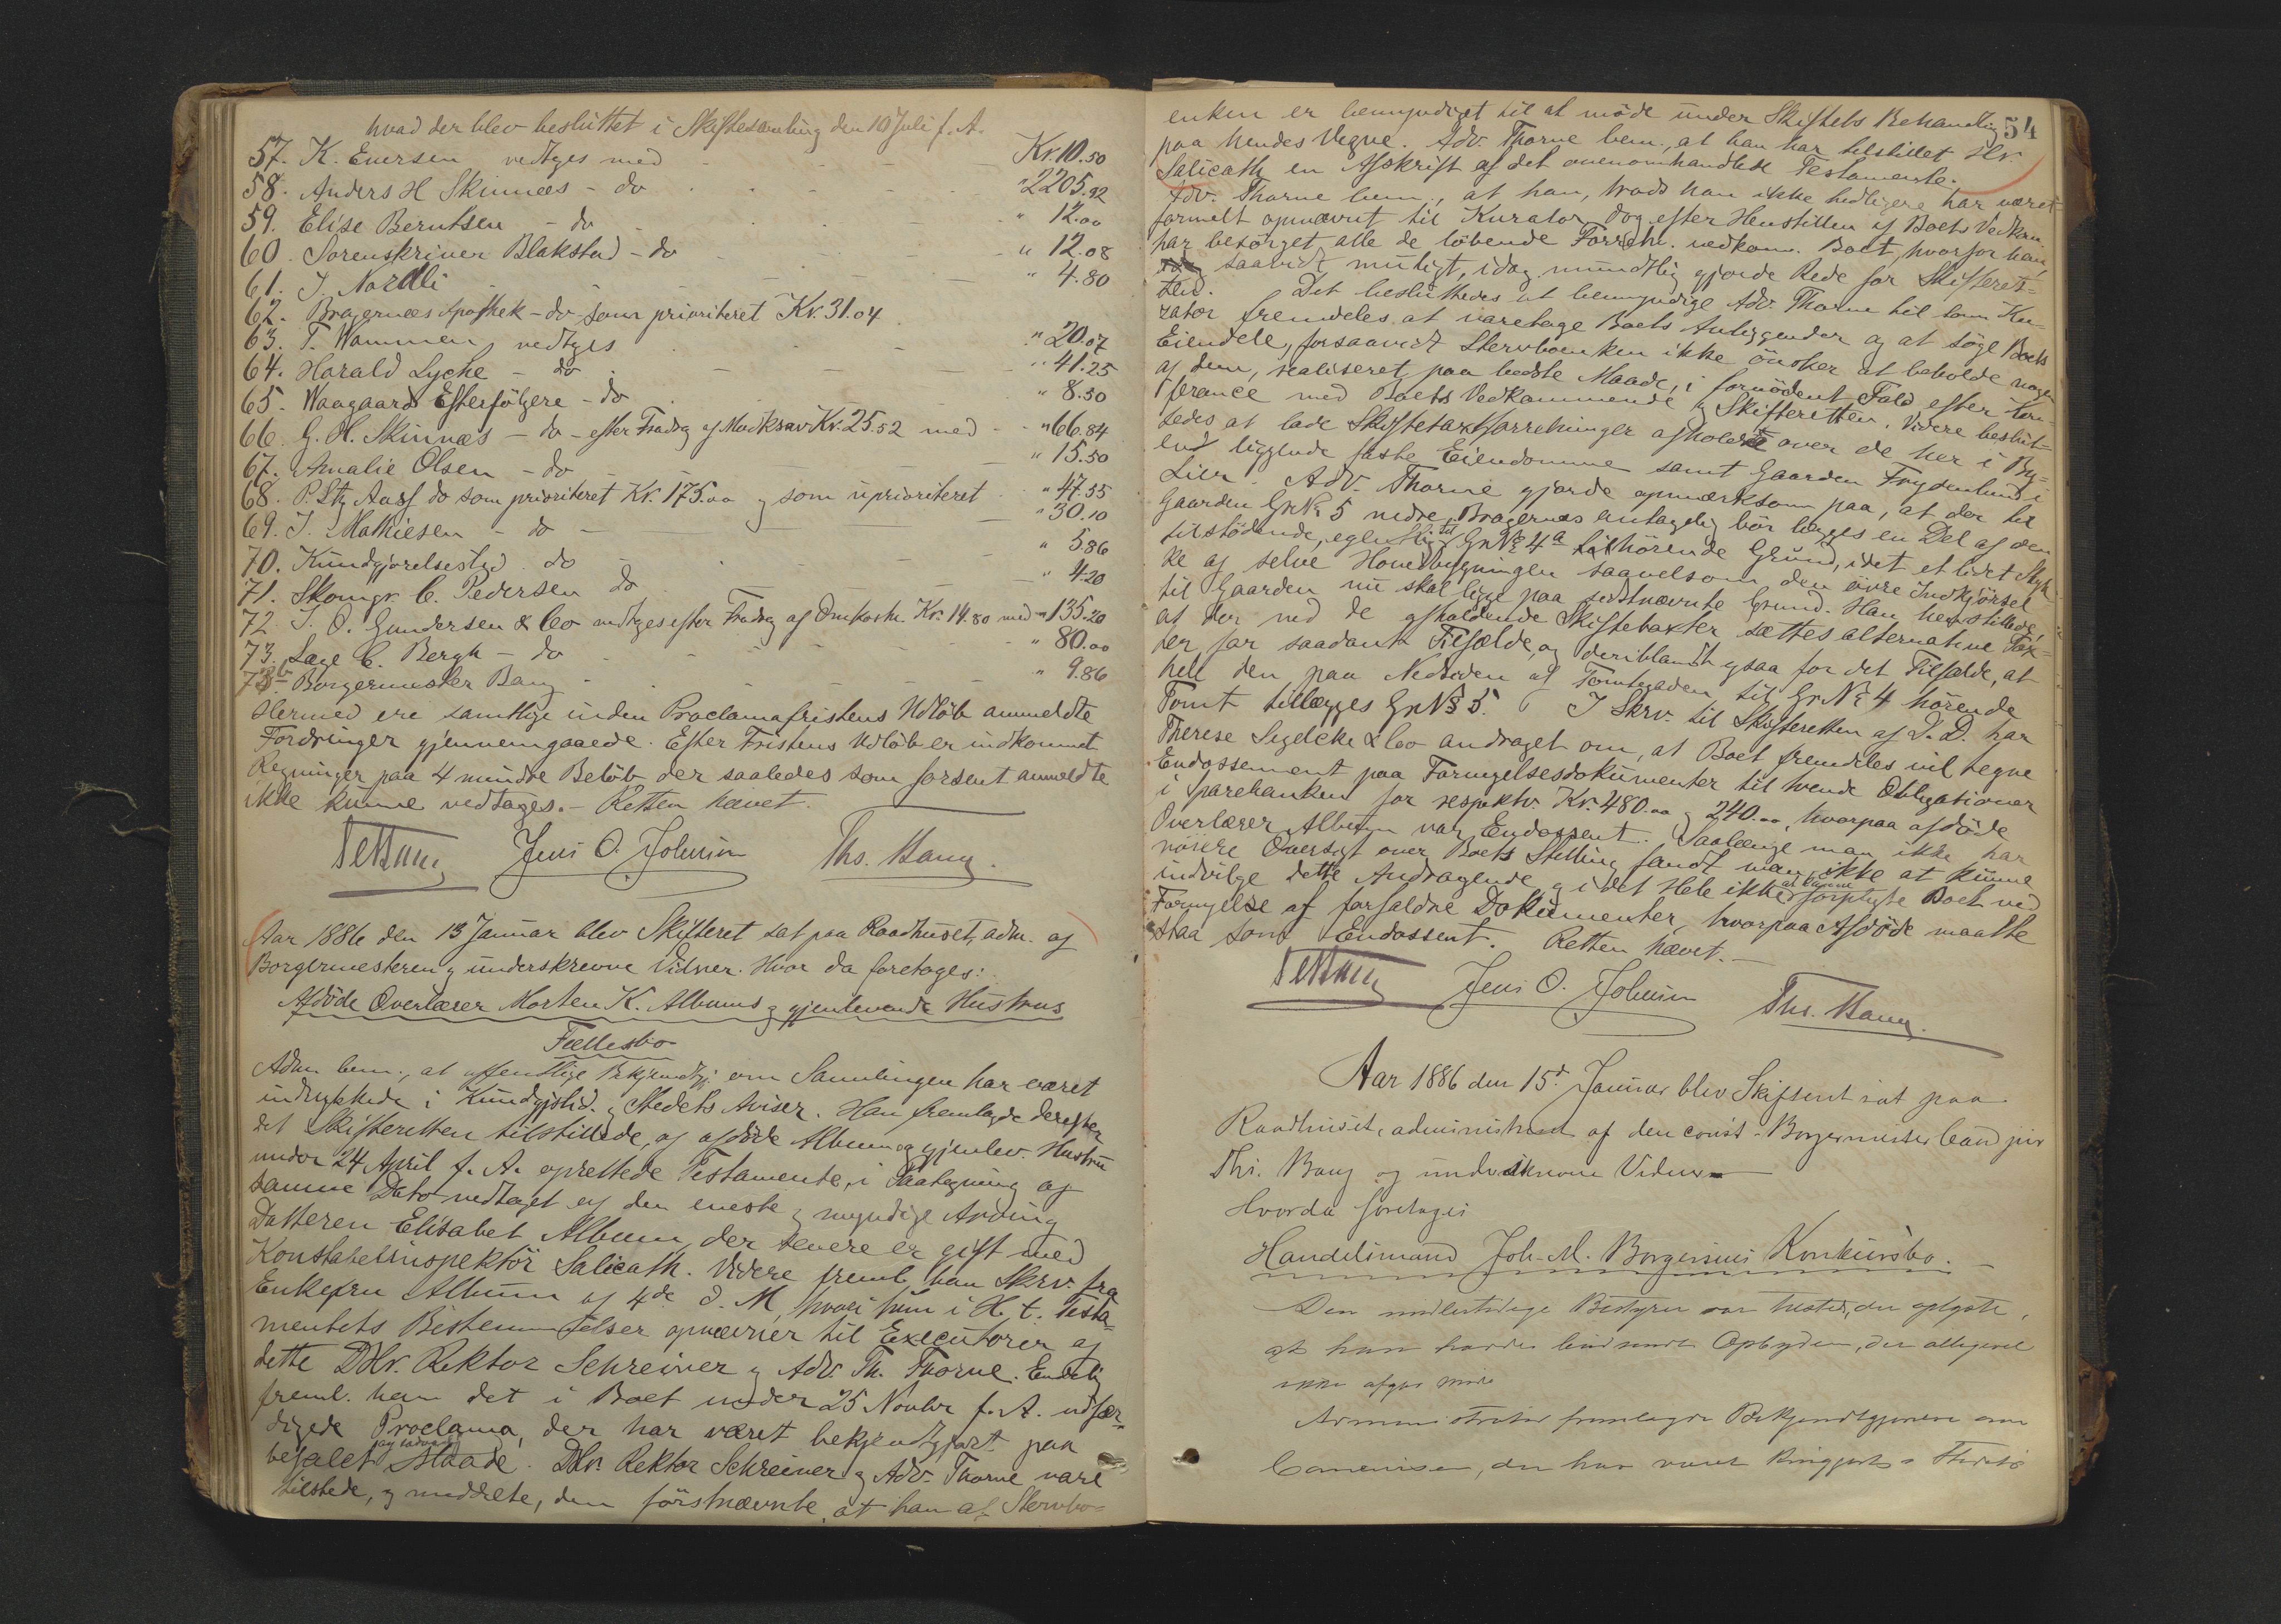 hvad der blev besluttet i Skiftesamling den 10 Juli f. A.
57. K. Eversen vedtges med Kr. 10.50
58. Anders H Skinnes - do " 2205.92
59. Elise Berntsen - do " 12.00
60. Sorenskriver Blakstad - do " 12.08
61. J. Nordli " 4.80
62. Bragernæs Apothek - do som prioriteret Kr. 31.04
63. T. Wammen, vedtges " 20.07
64. Harald Lyche - do " 41.25
65. Waagaards Efterfölgere - do " 8.50
66. G. H. Skinnæs - do - efter Fradrag af Modkrav Kr. 25.52 med " 66.84
67. Amalie Olsen - do " 15.50
68. P. Ltz Aass do som prioriteret Kr. 175.00 og som uprioriteret " 47.55
69. J. Mathiesen - do " 30.10
70. Kundgjørelsestid. do " 5.86
71. Skomgr. C. Pedersen do " 4.20
72 J. O. Gundersen & Co vedtges efter Fradrag af Omkostn. Kr. 14.80 med " 135.20
73. Læge C. Bergh - do " 80.00
73b Borgermester Bang " 9.86
Hermed ere samtlige inden Proclamafristens Udløb anmeldte
Fordringer gjennemgaaede. Efter Fristens Udløb er indkommet
Regninger paa 4 mindre Beløb der saaledes som forsent anmeldte
ikke kunne vedtages. - Retten hævet.
Jens O. Johnsen Ths. Bang.
Aar 1886 den 13 Januar blev Skifteret sat paa Raadhuset, adm. af
Borgermesteren og underskrevne Vidner. Hvor da foretoges:
Afdøde Overlærer Morten K. Albums og gjenlevende Hustrus
Fællesbo
Adm. bem., at offentlige Bekjendtgj. om Samlingen har været
indrykkede i Kundgjstid. og Stedets Aviser. Han fremlagde derefter
det Skifteretten tilstillede, af afdøde Album og gjenlev. Hustru
under 24 April f. A. oprettede Testamente, i Paategning af
samme Dato vedtaget af den eneste og myndige Arving
Datteren Elisabet Album, der senere er gift med
Konstabelinspektör Salicath. Videre freml. han Skrv. fra
Enkefru Album af 4de d. M, hvori hun i H. t. Testa=
mentets Bestemmelser opnævner til Executorer af
dette DHr. Rektor Schreiner og Adv. Th. Thorne. Endelig
freml. han det i Boet under 25 Novbr f. A. udfær=
digede Proclama, der har været bekjendtgjort paa
befalet og lovlig Maade. DHr. Rektor Schreiner og Adv. Thorne vare
tilstede, og meddelte, den förstnævnte, at han af Stervbo=
54
enken er bemyndiget til at möde under Skiftets Behandling
paa hendes Vegne. Adv. Thorne bem., at han har tilstillet Hr.
Salicath en Afskrift af det ovenomhandlede Testamente.
Adv. Thorne bem., at han, trods han ikke hidtigere har været
formelt opnævnt til Kurator, dog efter Henstillen af Boets Vedkom.
har besörget alle de löbende Forretn. vedkom. Boet, hvorfor han,
saavidt muligt, idag mundtlig gjorde Rede for Skifteret=
ten. Det besluttedes at bemyndige Adv. Thorne til som Ku=
rator fremdeles at varetage Boets Anliggender og at söge Boets
Eiendele, forsaavidt Stervboenken ikke önsker at beholde nogen
af dem, realiseret paa bedste Maade, i fornödent Fald efter Kon=
ference med Boets Vedkommende og Skifteretten. Videre beslut=
tedes at lade Skiftetaxtforretninger afholde over de her i By=
en liggende faste Eiendomme samt Gaarden Frydenlund i
Lier. Adv. Thorne gjorde opmærksom paa, at der til
Gaarden GrNr. 5 nedre Bragernæs antagelig bör lægges en Del af den
tilstödende, egentlig til GrNo 4a hörende Grund, idet et lidet Styk=
ke af selve Hovedbygningen saavelsom den övre Indkjörsel
til Gaarden nu skal ligge paa sidstnævnte Grund. Han henstillede,
at der ved de afholdende Skiftetaxter sættes alternative Tax=
ter for saadant Tilfælde, og deriblandt ogsaa for det Tilfælde, at
hele den paa Nedsiden af Tomtegaden til GrNo 4 hörende
Tomt tillægges GrNo 5. I Skrv. til Skifteretten af D. D. har
Therese Segelcke & Co andraget om, at Boet fremdeles vil tegne
Endossement paa Fornyelsesdokumenter til tvende Obligationer
i Sparebanken for respektiv. Kr. 480.00 og 240.00, hvorpaa afdöde
Overlærer Album var Endossent. Saalænge man ikke har
nöiere Oversigt over Boets Stilling, fandt man ikke at kunne
indvilge dette Andragende, og i det Hele ikke at kunne forpligte Boet ved
Fornyelse af forfaldne Dokumenter, hvorpaa Afdöde maatte
staa som Endossent. Retten hævet. -
Jens O. Johnsen Ths. Bang.
Aar 1886 den 15d Januar blev Skifteret sat paa
Raadhuset, administreret af den const. Borgermester Cand jur
Ths. Bang og underskrevne Vidner
Hvorda foretoges
Handelsmand Joh. M. Borgersens Konkursbo.
Den midlertidige Bestyrer var tilstede, der oplyste,
at han havde
Administrator fremlagde Bekjendtgjörelse om